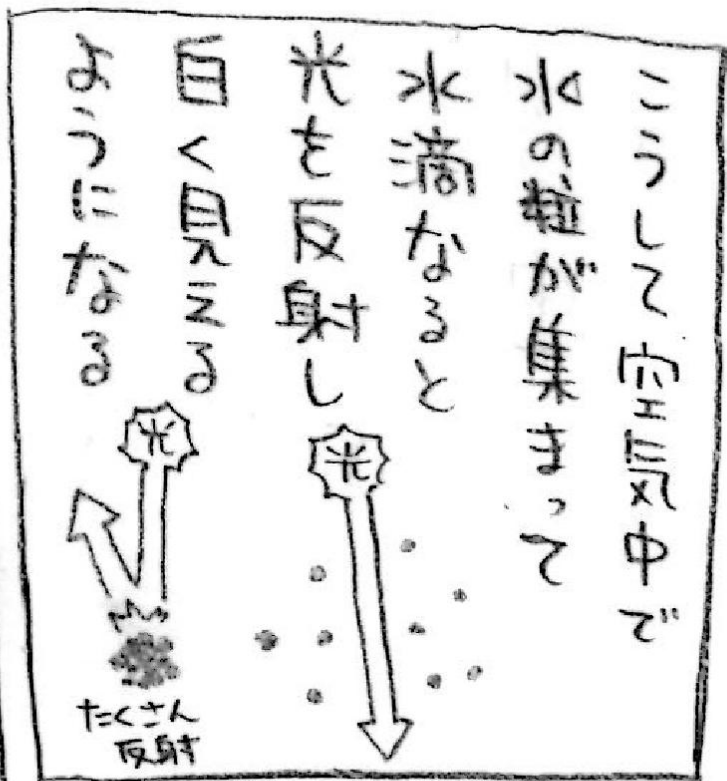 こうして空気中で
水の粒が集まって
水滴なると
光を反射し
白く見える
ようになる
光
光
たくさん
反射